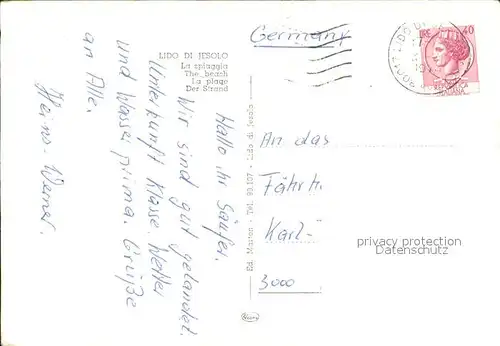 LIDO DI JESOLO
La spiaggia
The beach
La plage
Der Strand
Germany
LIRE 40
REPUBBLICA
ITALIANA
Hallo, ihr Säufer.
Wir sind gut gelandet.
Unterkunft Klasse. Wetter
und Wasser prima. Grüße
an Alle.
Heinz-Werner.
Ed. Marton - Tel. 90.107 - Lido di Jesolo
An das
Fährh.
Karl-
3000
privacy protection
Datenschutz